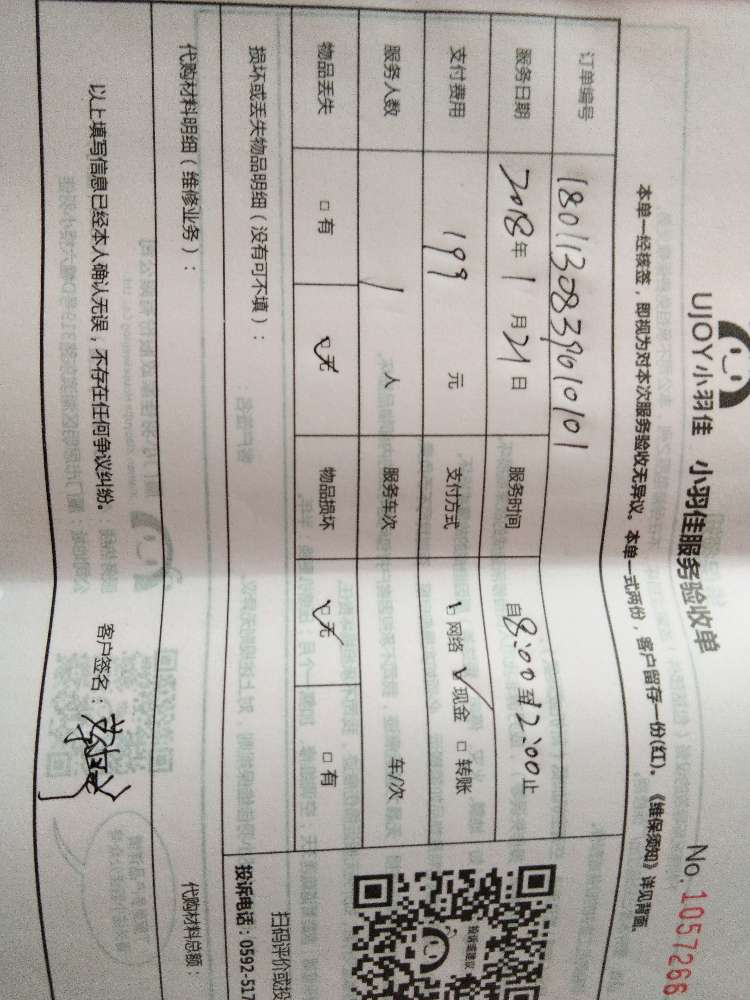 UJOY小羽佳 小羽佳服务验收单
No.1057266
本单一经核签，即视为对本次服务验收无异议。本单一式两份，客户留存一份(红)。《维保须知》详见背面。
订单编号 180113083960101
服务日期 2018年1月21日 服务时间 自8:00至12:00止
支付费用 199 元 支付方式 □网络 ✓现金 □转账
服务人数 1 人 服务车次 车/次
物品丢失 □有 ✓无 物品损坏 ✓无 □有
损坏或丢失物品明细（没有可不填）：
扫码评价或投
投诉电话：0592-517
投诉或建议
代购材料明细（维修业务）：
代购材料总额：
以上填写信息已经本人确认无误，不存在任何争议纠纷。 客户签名：